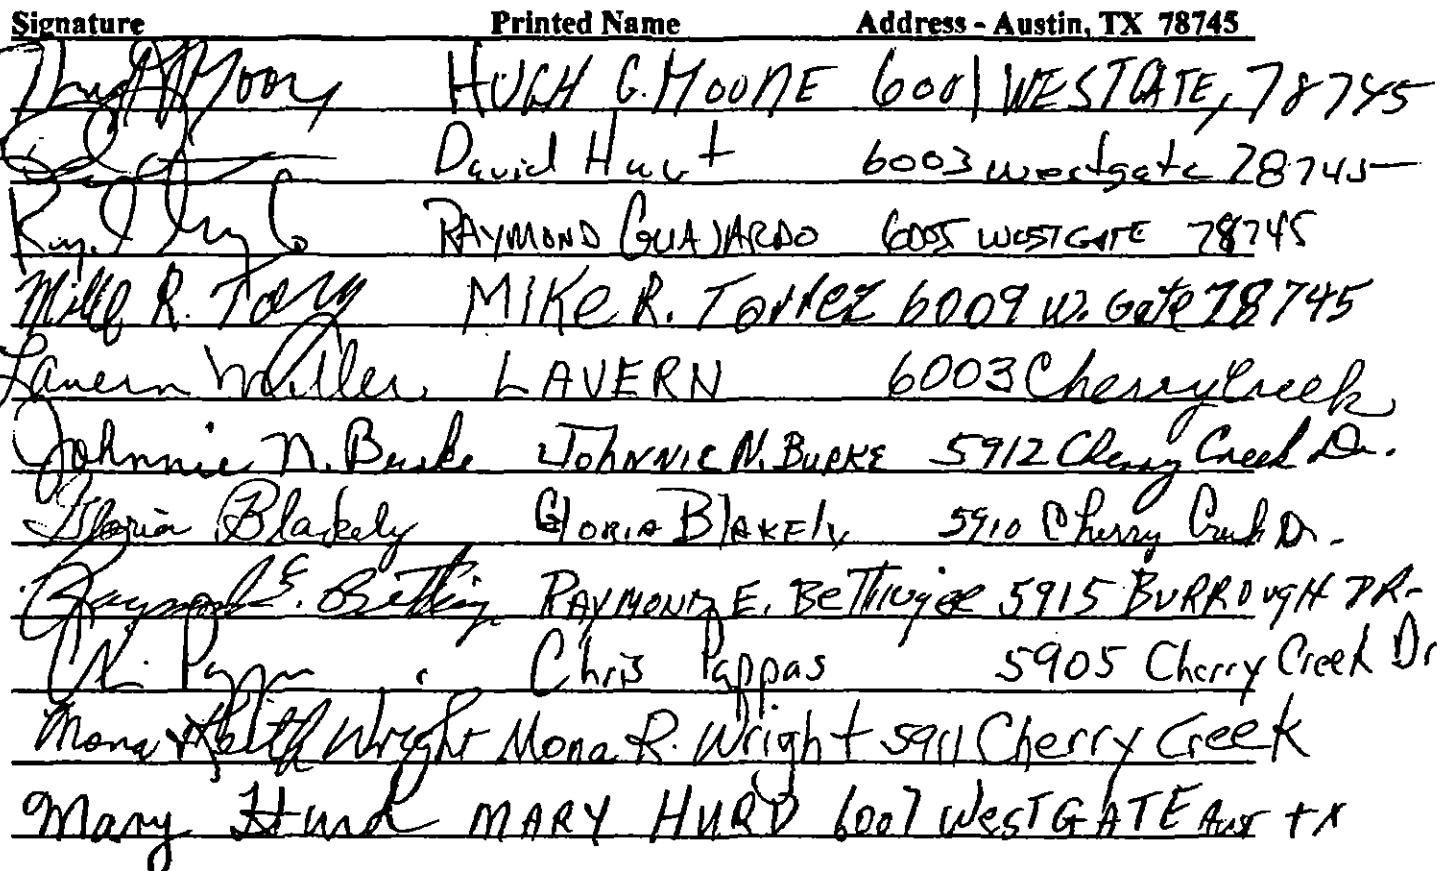 Signature Printed Name Address - Austin, TX 78745
HUGH G. MOONE 6001 WESTGATE, 78745
David Hunt 6003 westgate 78745
RAYMOND GUAJARDO 6005 WESTGATE 78745
Mike R. Torrez MIKE R. Torrez 6009 W. Gate 78745
Lavern Miller LAVERN 6003 Cherry Creek
Johnnie N. Burke JOHNNIE N. BURKE 5912 Cherry Creek Dr.
Gloria Blakely GLORIA BLAKELY 5910 Cherry Creek Dr.
Raymond E. RAYMOND E. 5915 BURROUGH DR.
Chris Pappas 5905 Cherry Creek Dr
Mona Keith Wright Mona R. Wright 5911 Cherry Creek
Mary Hurd MARY HURD 6007 WESTGATE Aus TX